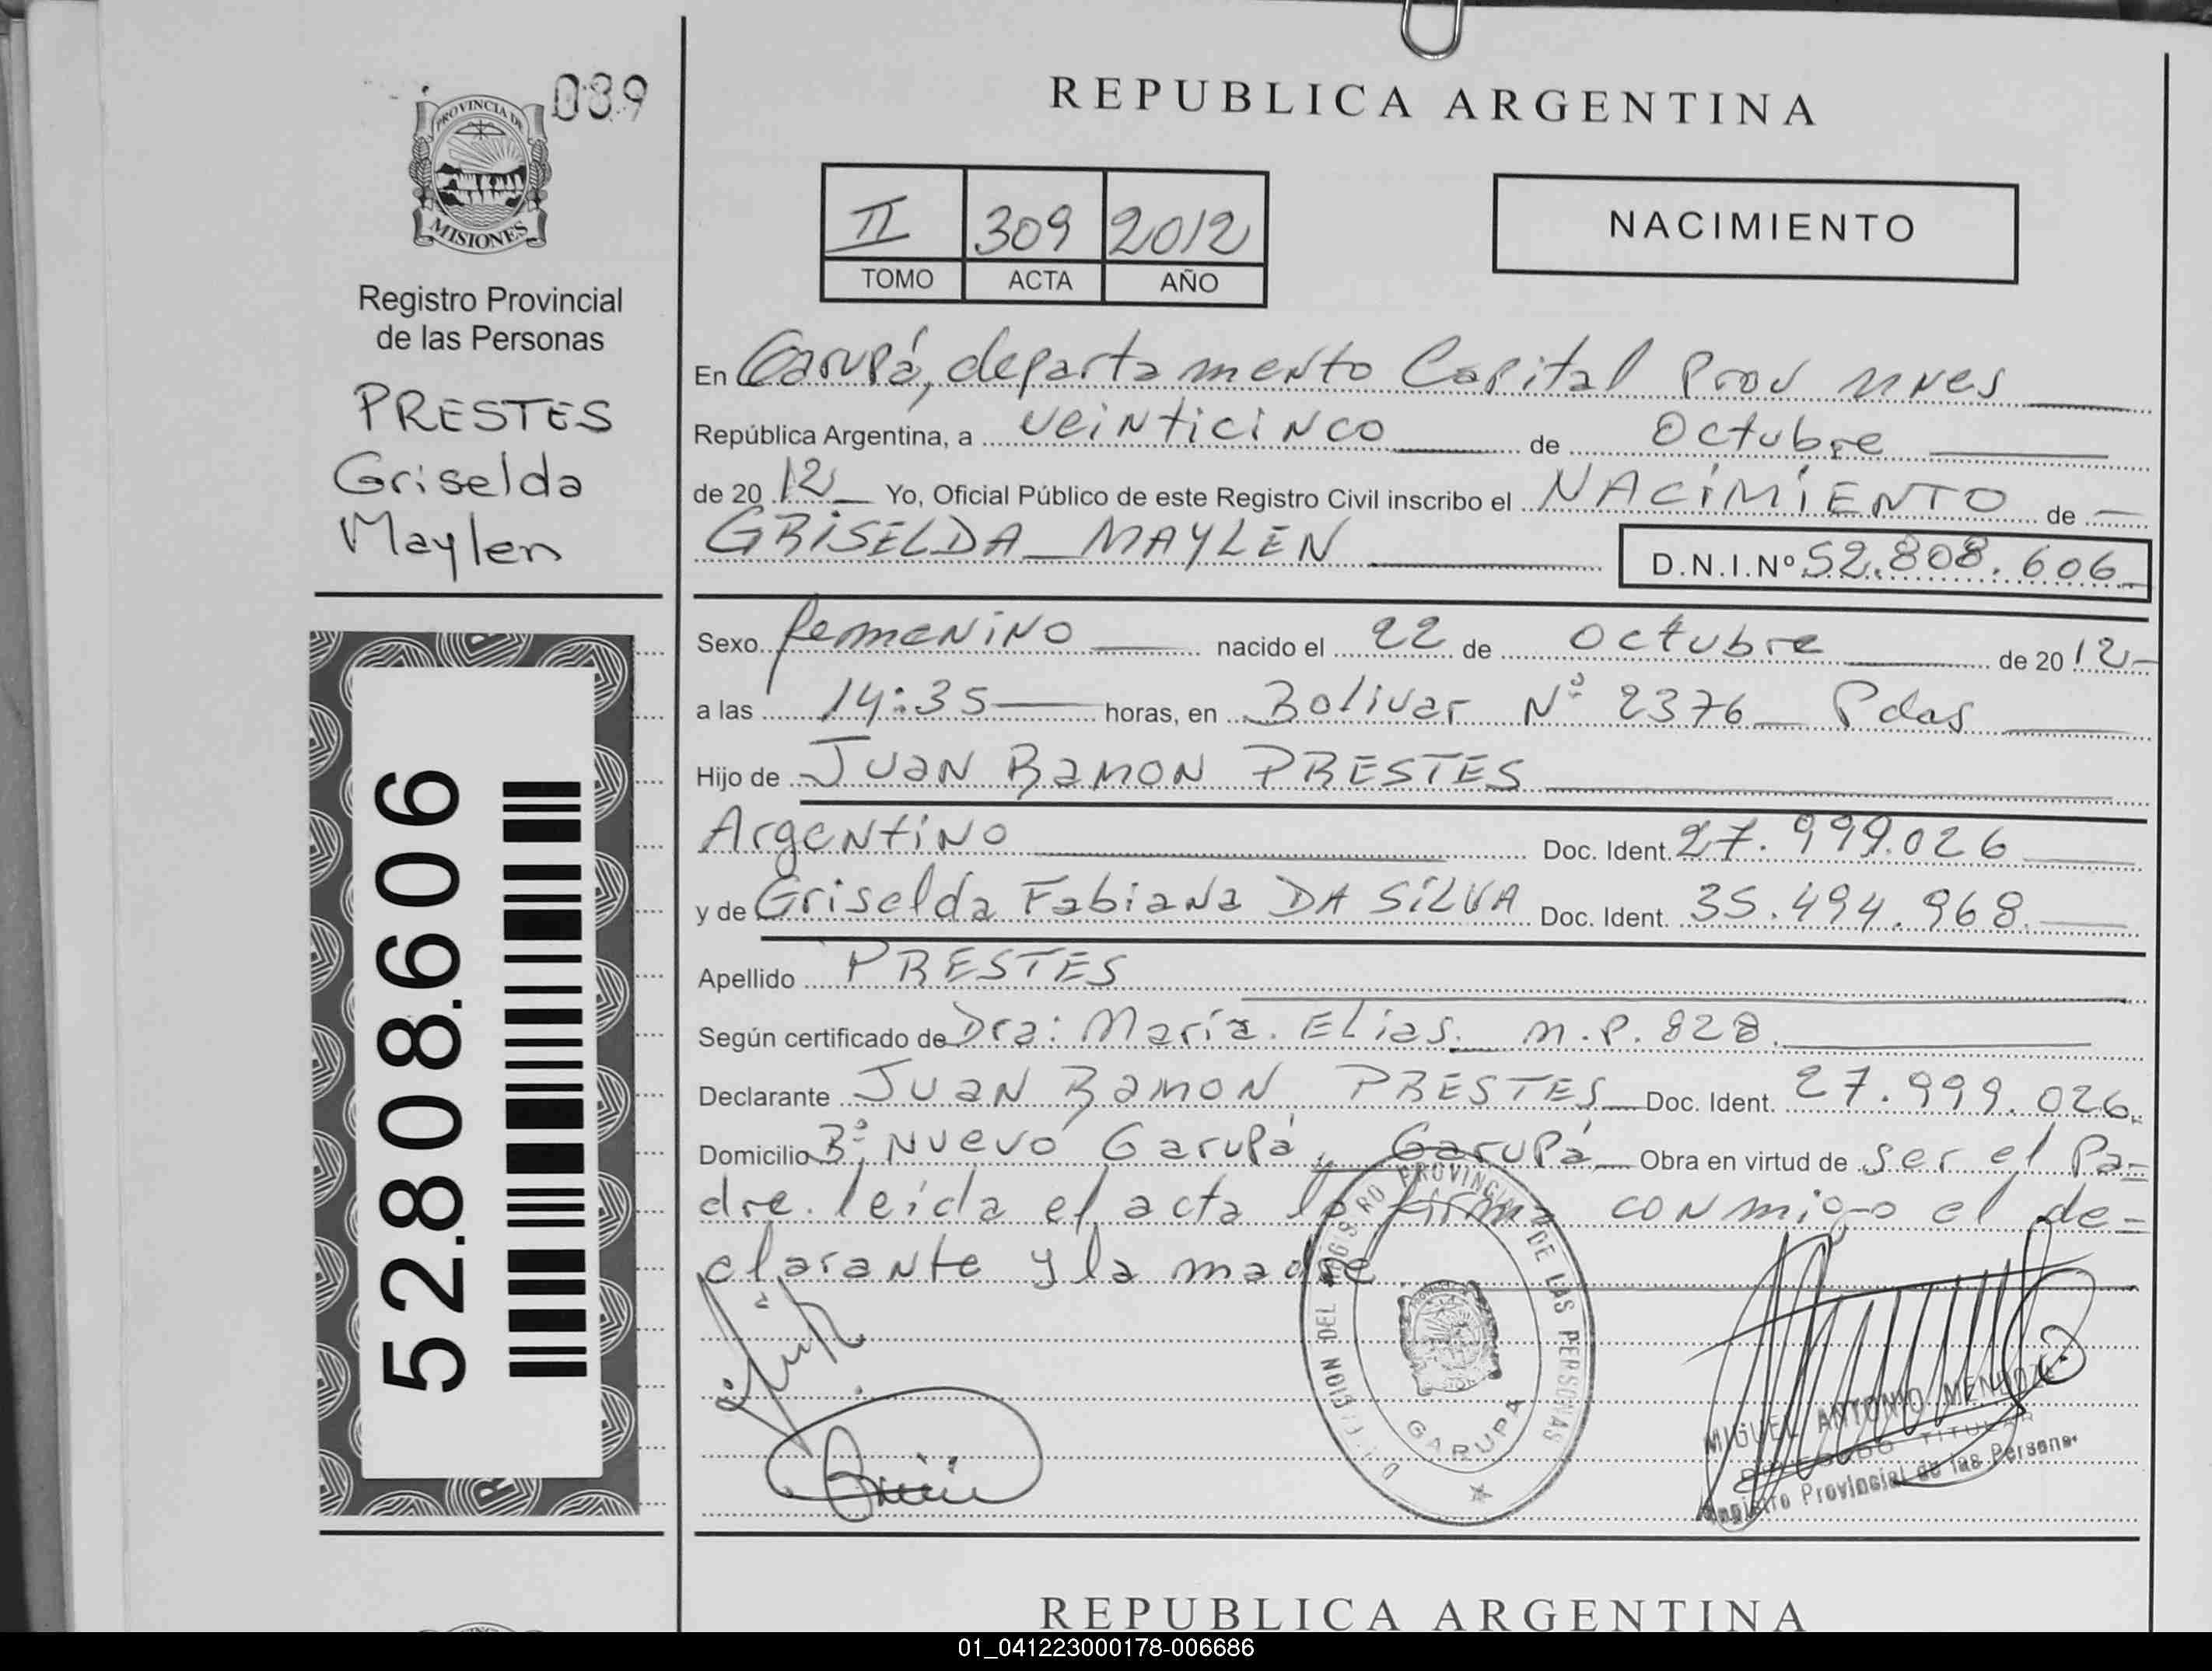 039
PROVINCIA DE
MISIONES
Registro Provincial
de las Personas
PRESTES
Griselda
Maylen
52.808.606
REPUBLICA ARGENTINA
II 309 2012
TOMO ACTA AÑO
NACIMIENTO
En Garupá, departamento Capital Prov mnes
República Argentina, a veinticinco de Octubre
de 20 12 Yo, Oficial Público de este Registro Civil inscribo el NACIMIENTO de
GRISELDA MAYLEN D.N.I.Nº 52.808.606
Sexo femenino nacido el 22 de Octubre de 20 12
a las 14:35 horas, en Bolivar Nº 2376 Pdas
Hijo de JUAN RAMON PRESTES
Argentino Doc. Ident. 27.999.026
y de Griselda Fabiana DA SILVA Doc. Ident. 35.494.968.
Apellido PRESTES
Según certificado de Dra: María. Elias. m.p. 828.
Declarante JUAN RAMON PRESTES Doc. Ident. 27.999.026.
Domicilio Bº: Nuevo Garupá, Garupá Obra en virtud de ser el Pa-
dre. leida el acta la firma conmigo el de-
clarante y la madre.
REGISTRO PROVINCIAL DE LAS PERSONAS
GARUPA
MIGUEL ANTONIO MENDOZA
TITULAR
Registro Provincial de las Personas
REPUBLICA ARGENTINA
01_041223000178-006686